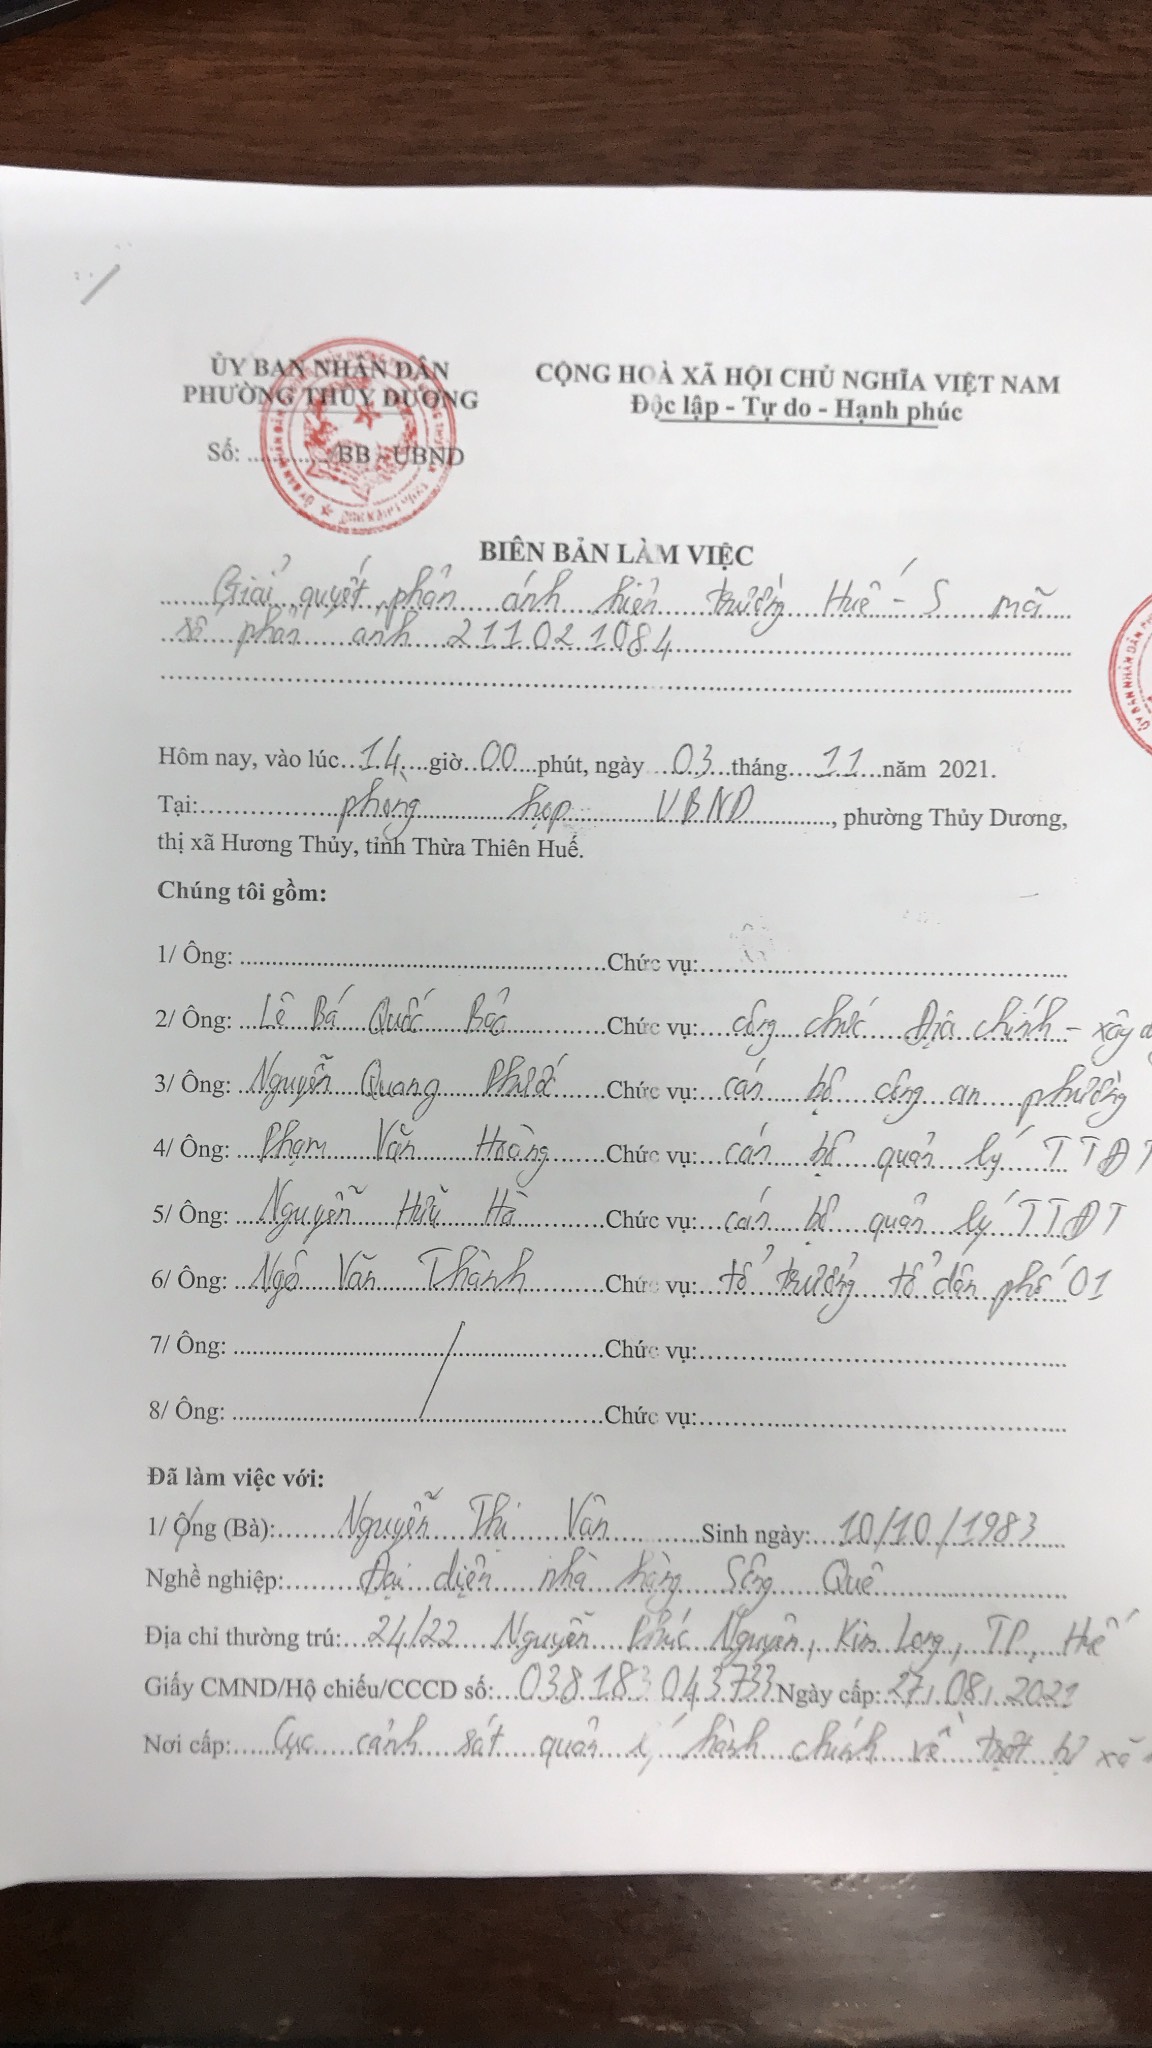 ỦY BAN NHÂN DÂN
PHƯỜNG THỦY DƯƠNG
Số: ............ BB - UBND
CỘNG HOÀ XÃ HỘI CHỦ NGHĨA VIỆT NAM
Độc lập - Tự do - Hạnh phúc
BIÊN BẢN LÀM VIỆC
Giải quyết phản ánh hiện trường Huế - S mã
số phản ánh 211021084
Hôm nay, vào lúc 14 giờ 00 phút, ngày 03 tháng 11 năm 2021.
Tại: phòng họp UBND, phường Thủy Dương,
thị xã Hương Thủy, tỉnh Thừa Thiên Huế.
Chúng tôi gồm:
1/ Ông: ............ Chức vụ: ............
2/ Ông: Lê Bá Quốc Bảo Chức vụ: công chức Địa chính - xây
3/ Ông: Nguyễn Quang Phước Chức vụ: cán bộ công an phường
4/ Ông: Phạm Văn Hoàng Chức vụ: cán bộ quản lý TTĐT
5/ Ông: Nguyễn Hữu Hà Chức vụ: cán bộ quản lý TTĐT
6/ Ông: Ngô Văn Thành Chức vụ: tổ trưởng tổ dân phố 01
7/ Ông: ............ Chức vụ: ............
8/ Ông: ............ Chức vụ: ............
Đã làm việc với:
1/ Ông (Bà): Nguyễn Thị Vân Sinh ngày: 10/10/1983
Nghề nghiệp: Đại diện nhà hàng Sông Quê
Địa chỉ thường trú: 24/22 Nguyễn Phúc Nguyên, Kim Long, TP, Huế
Giấy CMND/Hộ chiếu/CCCD số: 038183043733 Ngày cấp: 27/08/2021
Nơi cấp: Cục cảnh sát quản lý hành chính về trật tự xã